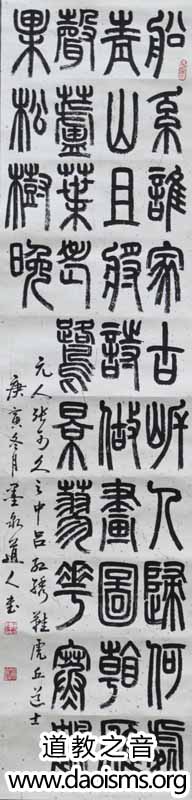 船系誰家古岸人歸何處
青山且將詩做畫圖看雁
聲蘆葉老鷺景蓼花寒鶴
巢松樹晚
元人張可久之中呂紅綉鞋虎丘道士
庚寅冬月墨泉道人書
道教之音
www.daoisms.org